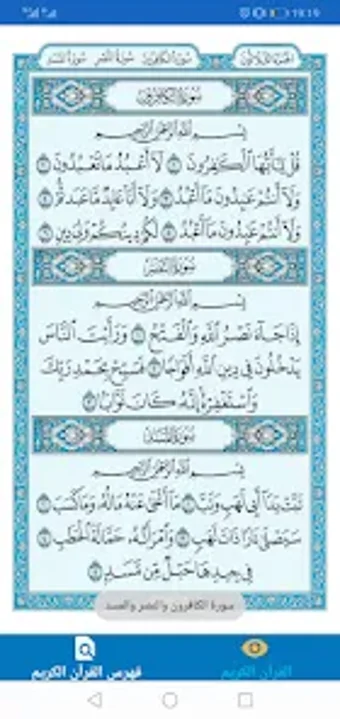 19:19
الجزء الثلاثون
سورة الكافرون سورة النصر سورة المسد
سورة الكافرون
بسم الله الرحمن الرحيم
قل يأيها الكفرون ١ لا أعبد ما تعبدون ٢
ولا أنتم عبدون ما أعبد ٣ ولا أنا عابد ما عبدتم ٤
ولا أنتم عبدون ما أعبد ٥ لكم دينكم ولي دين ٦
سورة النصر
بسم الله الرحمن الرحيم
إذا جاء نصر الله والفتح ١ ورأيت الناس
يدخلون في دين الله أفواجا ٢ فسبح بحمد ربك
واستغفره إنه كان توابا ٣
سورة المسد
بسم الله الرحمن الرحيم
تبت يدا أبي لهب وتب ١ ما أغنى عنه ماله وما كسب ٢
سيصلى نارا ذات لهب ٣ وامرأته حمالة الحطب ٤
في جيدها حبل من مسد ٥
سورة الكافرون والنصر والمسد
القرآن الكريم
فهرس القرآن الكريم